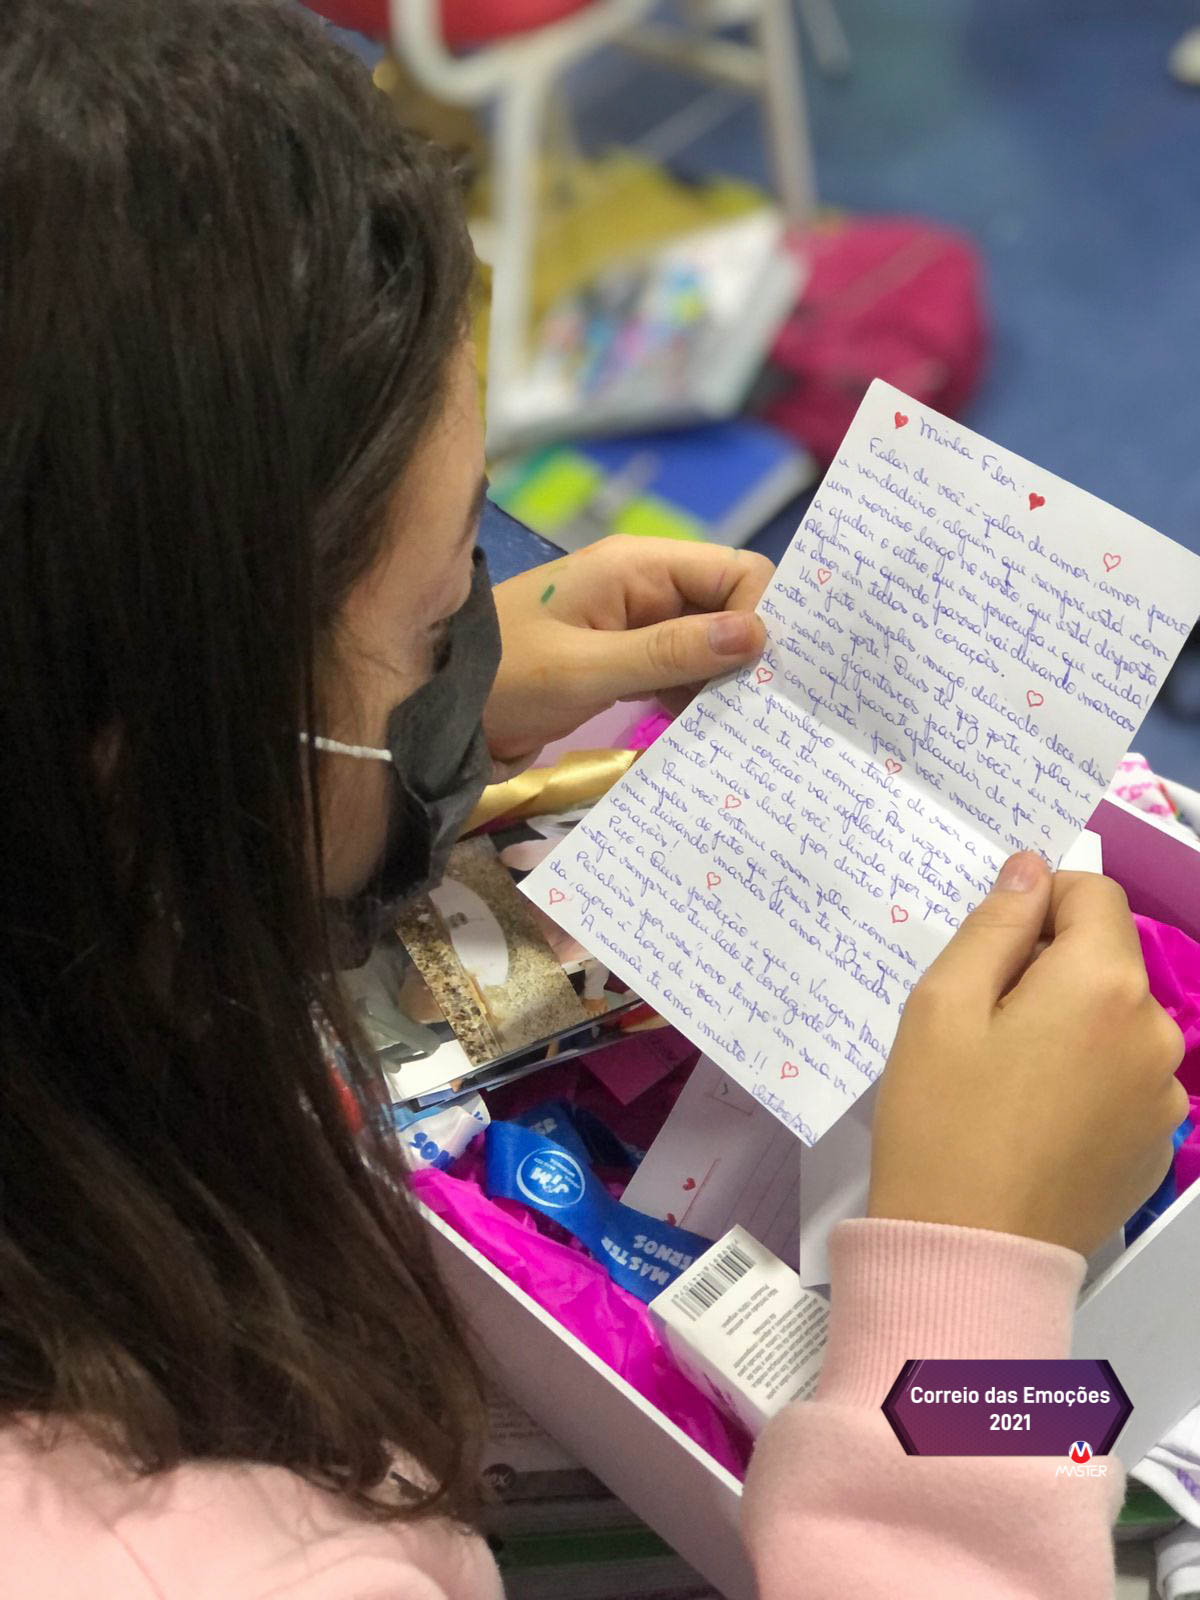 Minha Flor:
Falar de você é falar de amor, amor puro
e verdadeiro, alguém que sempre está com
um sorriso largo no rosto, que está disposta
a ajudar o outro, que se preocupa e que cuida!
Alguém que quando passa vai deixando marcas
de amor em todos os corações.
Um jeito simples, meigo, delicado, doce, dis-
creto, mas forte! Deus te fez forte, filha, e
tem sonhos gigantescos para você e eu sem-
estarei aqui para aplaudir de pé a
da conquista, pois você merece
Que privilégio eu tenho de ser a
mãe, de te ter comigo. Às vezes
que meu coração vai explodir de tanto
que tenho de você, linda por fora
muito mais linda por dentro!
Que você continue assim filha, com esse
simples, do jeito que Jesus te fez e que
deixando marcas de amor em todos
corações!
Peço a Deus proteção e que a Virgem
esteja sempre ao teu lado te conduzindo em tudo
Parabéns por esse "novo tempo" em sua vi-
da, agora é hora de voar!
A mamãe te ama muito!!
JIM
MASTER
Correio das Emoções
2021
MASTER